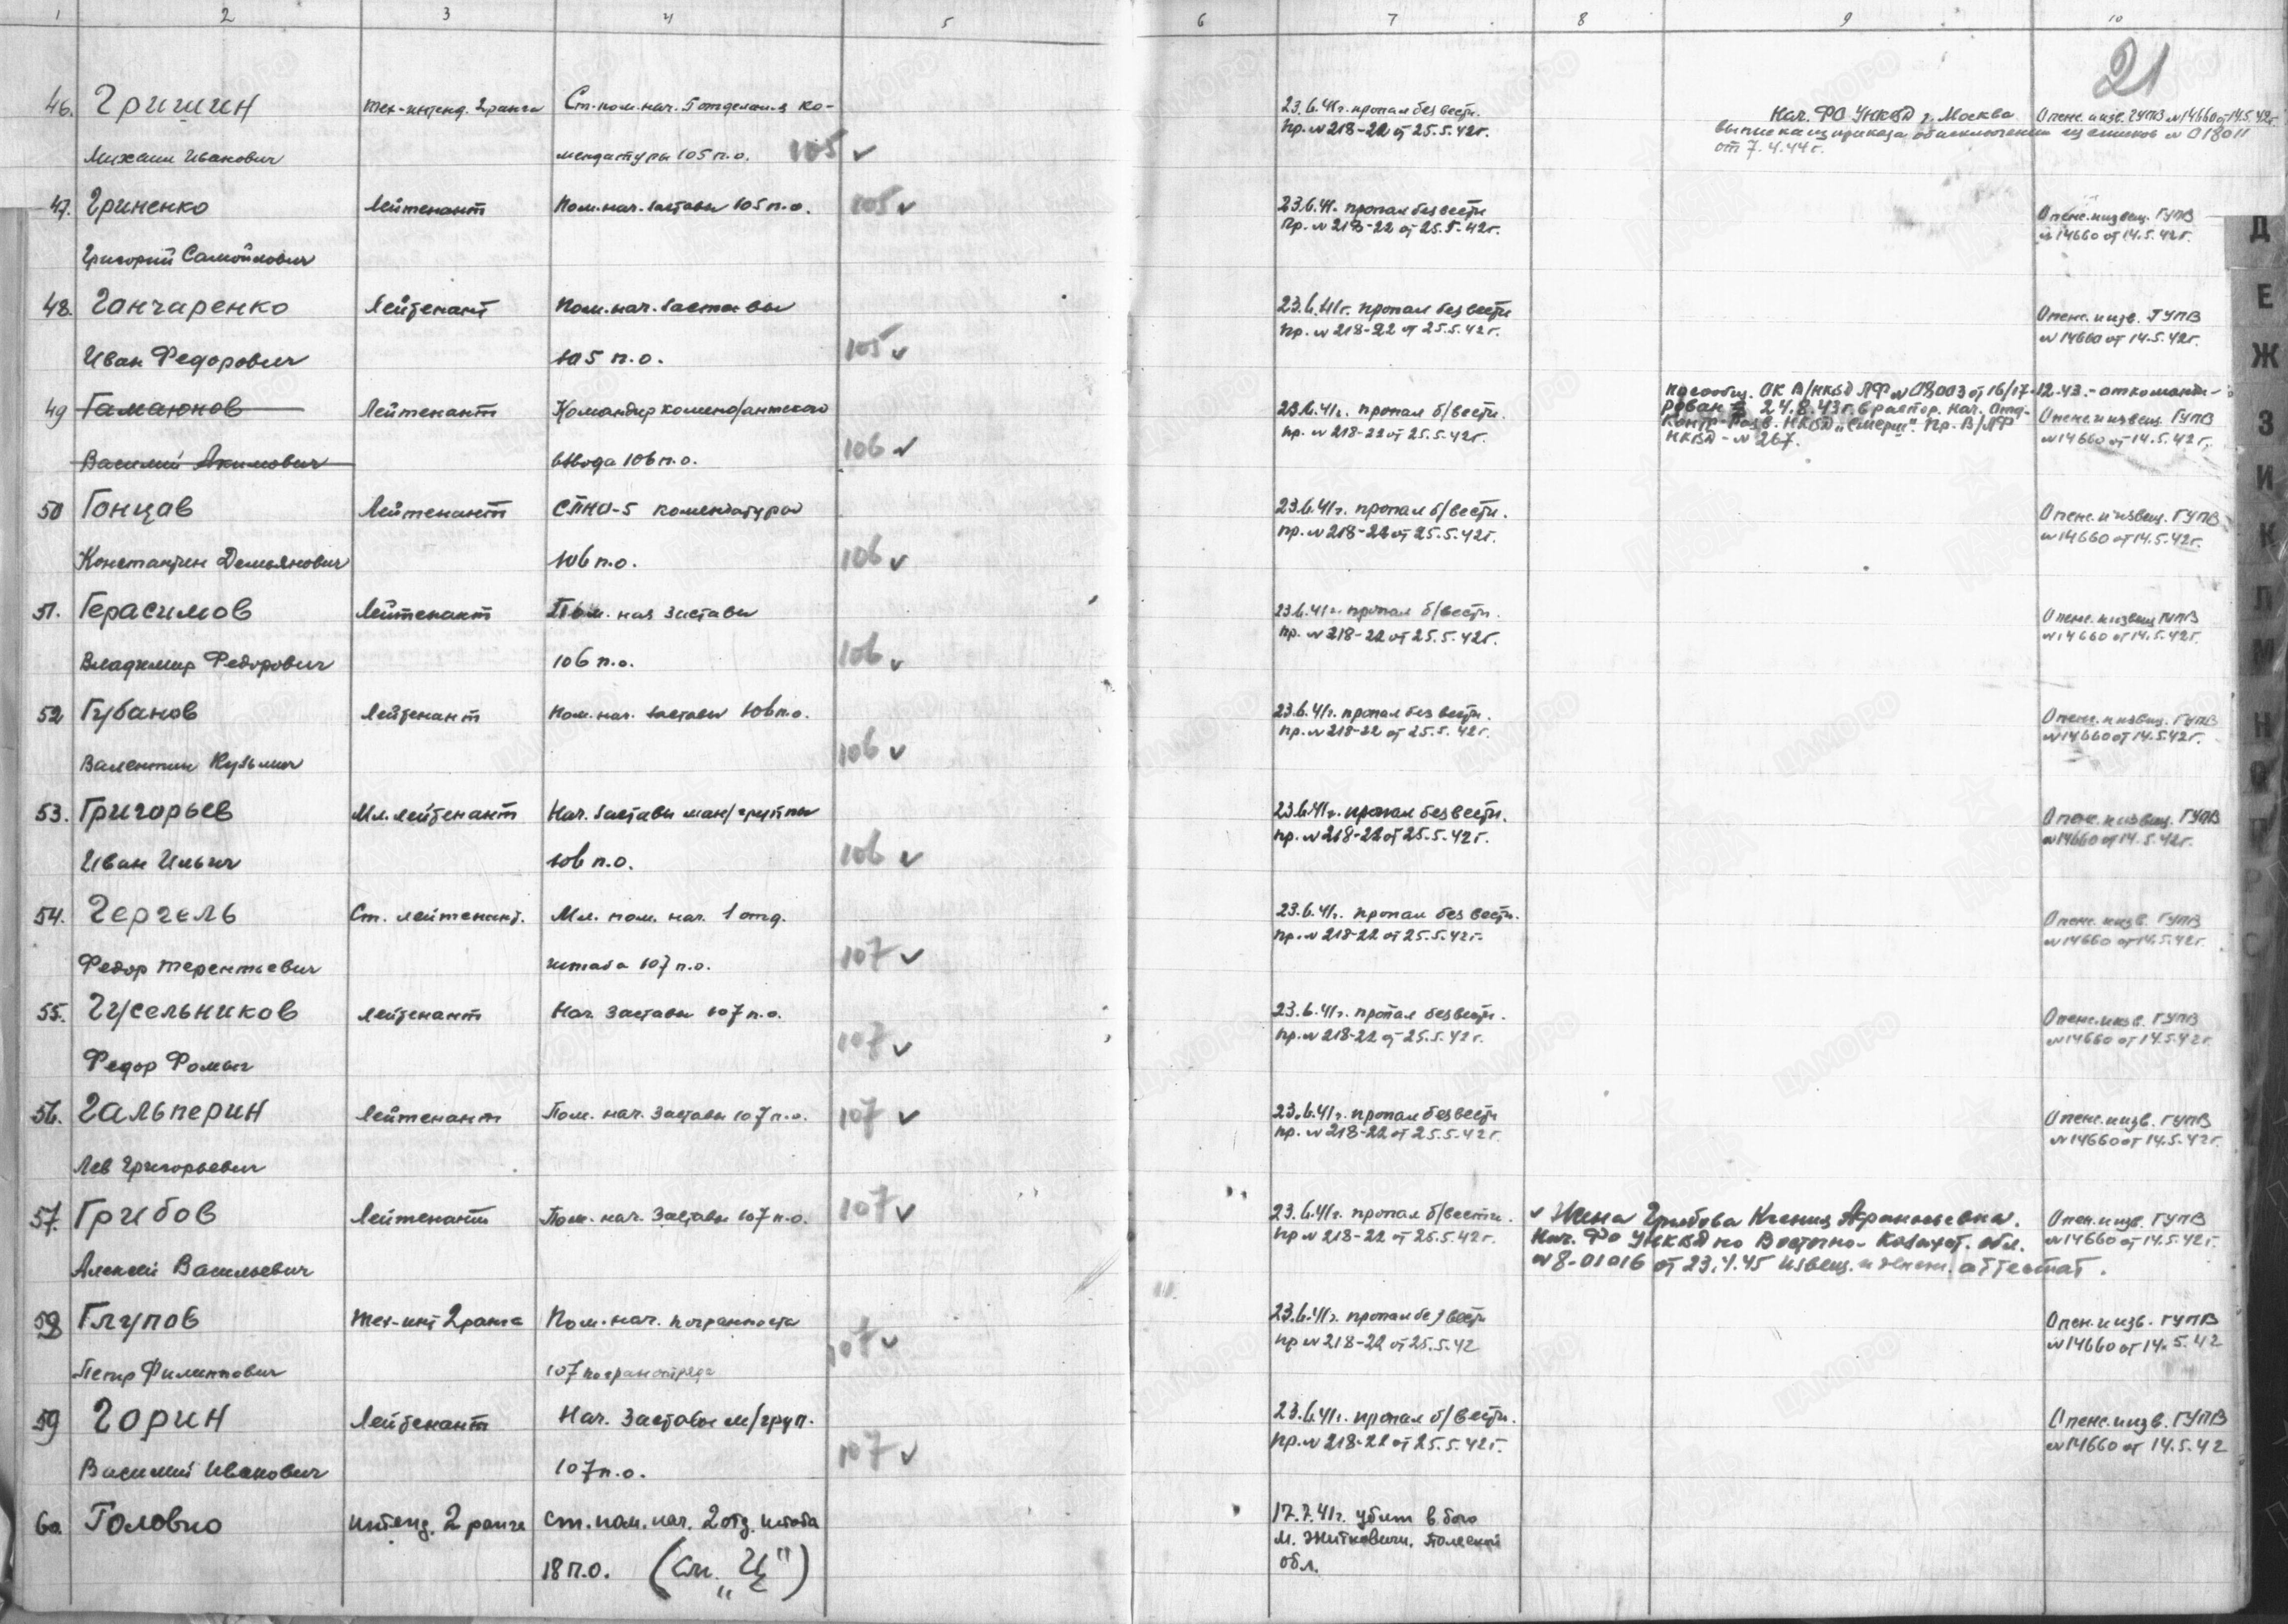 1 2 3 4 5 6 7 8 9 10
21
46. Гришин тех-интенд. 2 ранга Ст. пом. нач. 5 отделения ко- 23.6.41г. пропал без вести. Нач. ФО УНКВД г. Москва Опенс. и изв. ГУПВ №14660 от 14.5.42г.
пр. №218-22 от 25.5.42г. выписка из приказа об исключении из списков №018011
от 7.4.44г.
Михаил Иванович мендатуры 105 п.о. 105 ✓
47. Гриненко Лейтенант Пом. нач. заставы 105 п.о. 105 ✓ 23.6.41. пропал без вести Опенс. и извещ. ГУПВ
пр. №218-22 от 25.5.42г. №14660 от 14.5.42г.
Григорий Самойлович
48. Ганчаренко Лейтенант Пом. нач. заставы 23.6.41г. пропал без вести Опенс. и изв. ГУПВ
пр. №218-22 от 25.5.42г. №14660 от 14.5.42г.
Иван Федорович 105 п.о. 105 ✓
по сообщ. ОК В/НКВД ЛФ №08003 от 16/17-12.43.-откоманди-
49 Гамаюнов Лейтенант Командир коменд/антского 23.6.41г. пропал б/вести. рован 24.8.43г. в распор. нач. отд. Опенс. и извещ. ГУПВ
контр-разв. НКВД „Смерш". Пр. В/ЛФ
пр. №218-22 от 25.5.42г. НКВД-№267. №14660 от 14.5.42г.
Василий Акимович взвода 106 п.о. 106 ✓
50 Гонцав Лейтенант СПНО-5 комендатуры 23.6.41г. пропал б/вести. Опенс. и извещ. ГУПВ
пр. №218-22 от 25.5.42г. №14660 от 14.5.42г.
Константин Демьянович 106 п.о. 106 ✓
51. Герасимов Лейтенант Пом. нач заставы 23.6.41г. пропал б/вести. Опенс. и извещ ГУПВ
пр. №218-22 от 25.5.42г. №14660 от 14.5.42г.
Владимир Федорович 106 п.о. 106 ✓
52 Губанов Лейтенант Пом. нач. заставы 106 п.о. 23.6.41г. пропал без вести. Опенс. и извещ. ГУПВ
пр. №218-22 от 25.5.42г. №14660 от 14.5.42г.
Валентин Кузьмич 106 ✓
53. Григорьев Мл. лейтенант Нач. заставы ман/группы 23.6.41г. пропал без вести. Опенс. и извещ. ГУПВ
пр. №218-22 от 25.5.42г. №14660 от 14.5.42г.
Иван Ильич 106 п.о. 106 ✓
54. Гергель Ст. лейтенант. Мл. пом. нач. 1 отд. 23.6.41г. пропал без вести. Опенс. и изв. ГУПВ
пр. №218-22 от 25.5.42г. №14660 от 14.5.42г.
Федор Терентьевич штаба 107 п.о. 107 ✓
55. Гусельников лейтенант Нач заставы 107 п.о. 23.6.41г. пропал без вести. Опенс. и изв. ГУПВ
пр. №218-22 от 25.5.42г. №14660 от 14.5.42г.
Федор Фомич 107 ✓
56. Гальперин Лейтенант Пом. нач. заставы 107 п.о. 107 ✓ 23.6.41г. пропал без вести Опенс. и изв. ГУПВ
пр. №218-22 от 25.5.42г. №14660 от 14.5.42г.
Лев Григорьевич
57. Грибов Лейтенант Пом. нач. заставы 107 п.о. 107 ✓ 23.6.41г. пропал б/вести. ✓ Жена Грибова Ксения Афанасьевна. Опен. и изв. ГУПВ
пр №218-22 от 25.5.42г. Нач. ФО УНКВД по Восточно-Казахст. обл. №14660 от 14.5.42г.
Алексей Васильевич №8-01016 от 23.4.45 извещ. и пенс. аттестат.
58 Глупов тех-инт 2 ранга Пом. нач. погранпоста 23.6.41г. пропал без вести Опен. и изв. ГУПВ
пр №218-22 от 25.5.42 №14660 от 14.5.42
Петр Филиппович 107 погранотряда 107 ✓
59 Горин Лейтенант Нач. заставы м/груп. 23.6.41г. пропал б/вести. Опенс. и изв. ГУПВ
пр. №218-22 от 25.5.42г. №14660 от 14.5.42
Василий Иванович 107 п.о. 107 ✓
60 Головко интенд. 2 ранга ст. пом. нач. 2 отд. штаба 17.7.41г. убит в бою
м. Житковичи, Полеской
18 п.о. (см. „Ц") обл.
Д
Е
Ж
З
И
К
Л
М
Н
О
П
Р
С